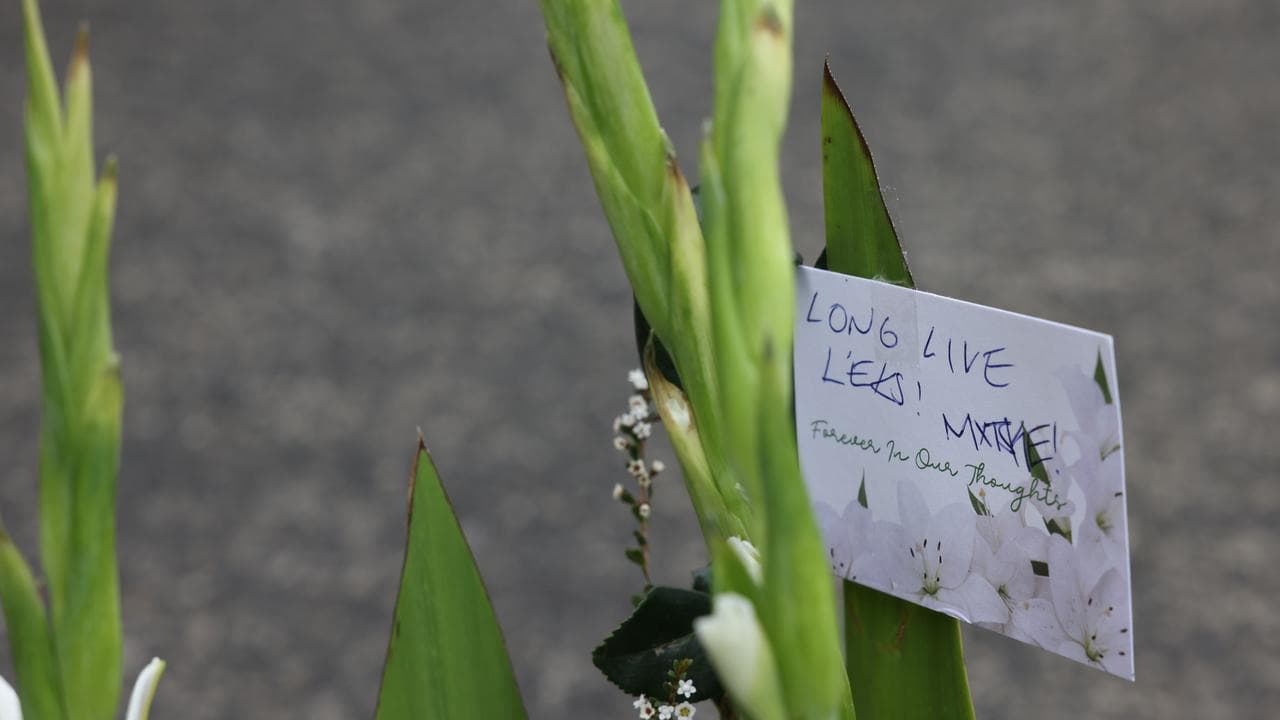 LONG LIVE
L'EKS!
Forever In Our Thoughts